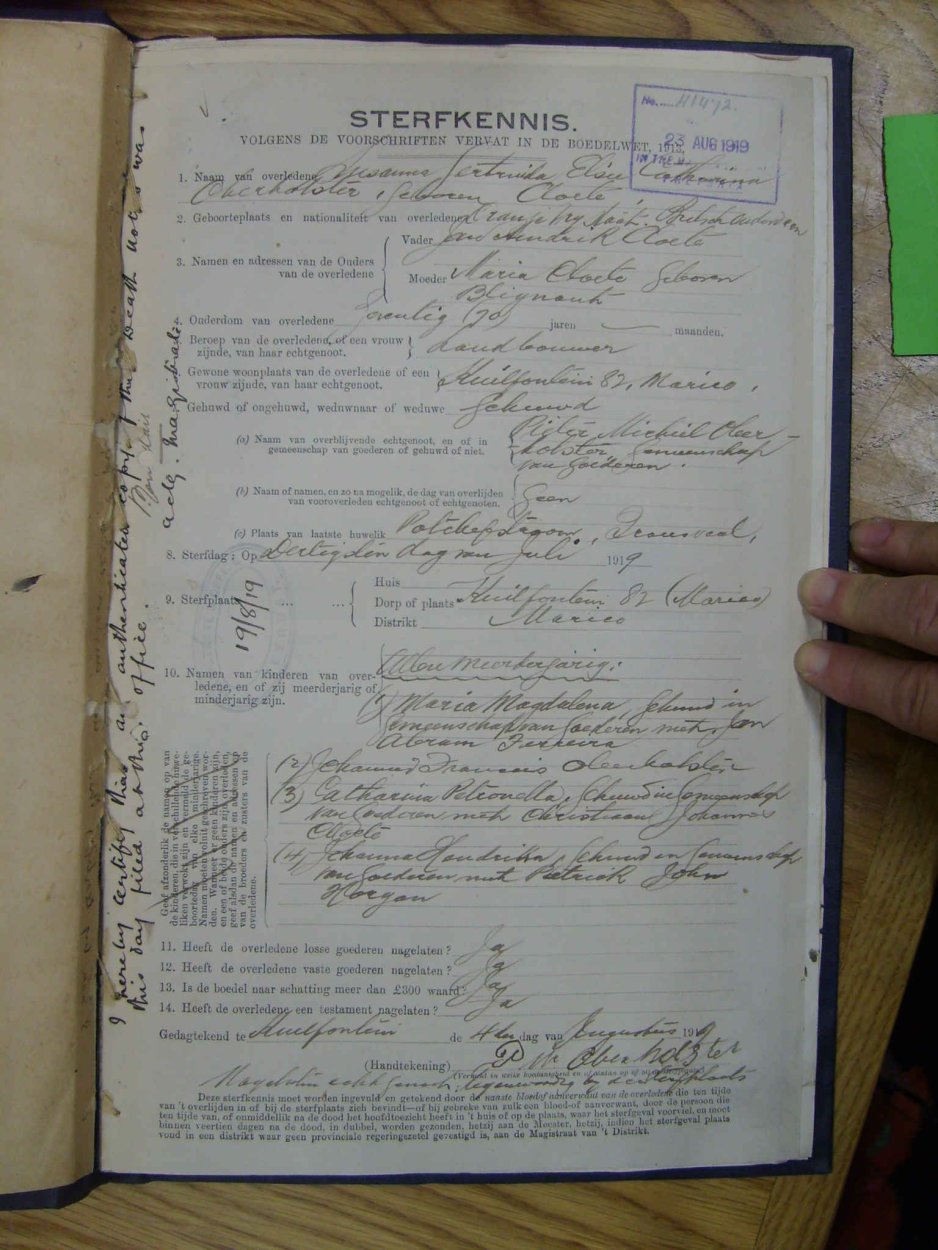 No. H1472.
23 AUG 1919
IN THE
STERFKENNIS.
VOLGENS DE VOORSCHRIFTEN VERVAT IN DE BOEDELWET, 1913.
1. Naam van overledene Susanna Gertruida Elsie Catharina
Oberholster, geboren Cloete
2. Geboorteplaats en nationaliteit van overledene Oranje Vry Staat.
3. Namen en adressen van de Ouders van de overledene
Vader Jan Hendrik Cloete
Moeder Maria Cloete geboren
Blignaut
4. Onderdom van overledene Zeventig (70) jaren — maanden.
Beroep van de overledene, of een vrouw zijnde, van haar echtgenoot. Landbouwer
Gewone woonplaats van de overledene of een vrouw zijnde, van haar echtgenoot. Kuilfontein 82, Marico.
Gehuwd of ongehuwd, weduwnaar of weduwe Gehuwd
(a) Naam van overblijvende echtgenoot, en of in gemeenschap van goederen of gehuwd of niet. Pieter Michiel Ober-
holster, gemeenschap
van Goederen.
(b) Naam of namen, en zo na mogelik, de dag van overlijden van vooroverleden echtgenoot of echtgenoten. Geen
(c) Plaats van laatste huwelik Potchefstroom, Transvaal,
8. Sterfdag: Op Dertigsten dag van Juli 1919
9. Sterfplaats ... ...
Huis
Dorp of plaats Kuilfontein 82 (Marico)
Distrikt Marico
19/8/19
10. Namen van kinderen van overledene, en of zij meerderjarig of minderjarig zijn.
Allen meerderjarig.
(1) Maria Magdalena, gehuwd in
gemeenschap van Goederen met Jan
Abram Ferreira
(2) Johannes Francois Oberholster
(3) Catharina Petronella, gehuwd in Gemeenschap
van Goederen met Christiaan Johannes
Cloete
(4) Johanna Hendrika, gehuwd in Gemeenschap
van Goederen met Patrick John
Horgan
Geef afzonderlik de namen op van
de kinderen, die in verschillende huwe-
liken verwekt zijn en vermeld de ge-
boortedag van elke minderjarige.
Namen moeten voluit geschreven wor-
den. Wanneer er geen kinderen zijn,
en een of beide ouders zijn overleden,
geef alsdan de namen en adressen op
van de broeders en zusters van de
overledene.
11. Heeft de overledene losse goederen nagelaten? Ja
12. Heeft de overledene vaste goederen nagelaten? Ja
13. Is de boedel naar schatting meer dan £300 waard? Ja
14. Heeft de overledene een testament nagelaten? Ja
Gedagtekend te Kuilfontein de 4den dag van Augustus 1919
(Handtekening) P M Oberholzter
Nagelaten echtgenoot, tegenwoordig by de sterfplaats
Deze sterfkennis moet worden ingevuld en getekend door de naaste bloed-of aanverwant van de overledene die ten tijde
van 't overlijden in of bij de sterfplaats zich bevindt—of bij gebreke van zulk een bloed-of aanverwant, door de persoon die
ten tijde van, of onmiddellik na de dood het hoofdtoezicht heeft in 't huis of op de plaats, waar het sterfgeval voorviel, en moet
binnen veertien dagen na de dood, in dubbel, worden gezonden, hetzij aan de Meester, hetzij, indien het sterfgeval plaats
vond in een distrikt waar geen provinciale regeringzetel gevestigd is, aan de Magistraat van 't Distrikt.
I hereby certify this an authenticated copy of the Death Notice was
this day filed at this office.
Actg. Magistrate